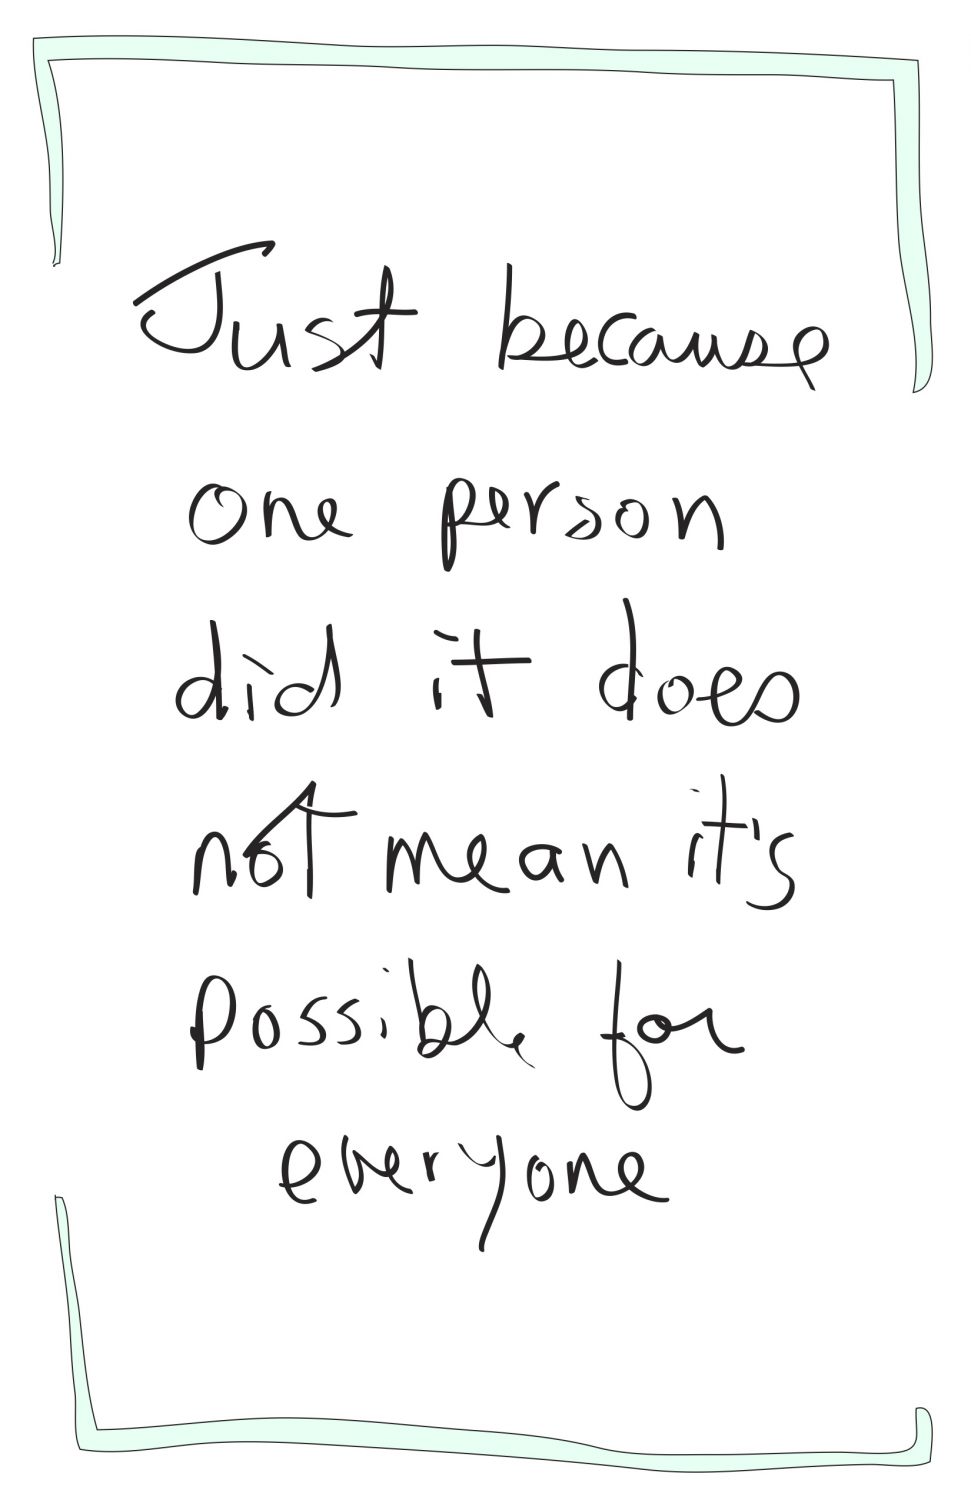 Just because
one person
did it does
not mean it's
possible for
everyone